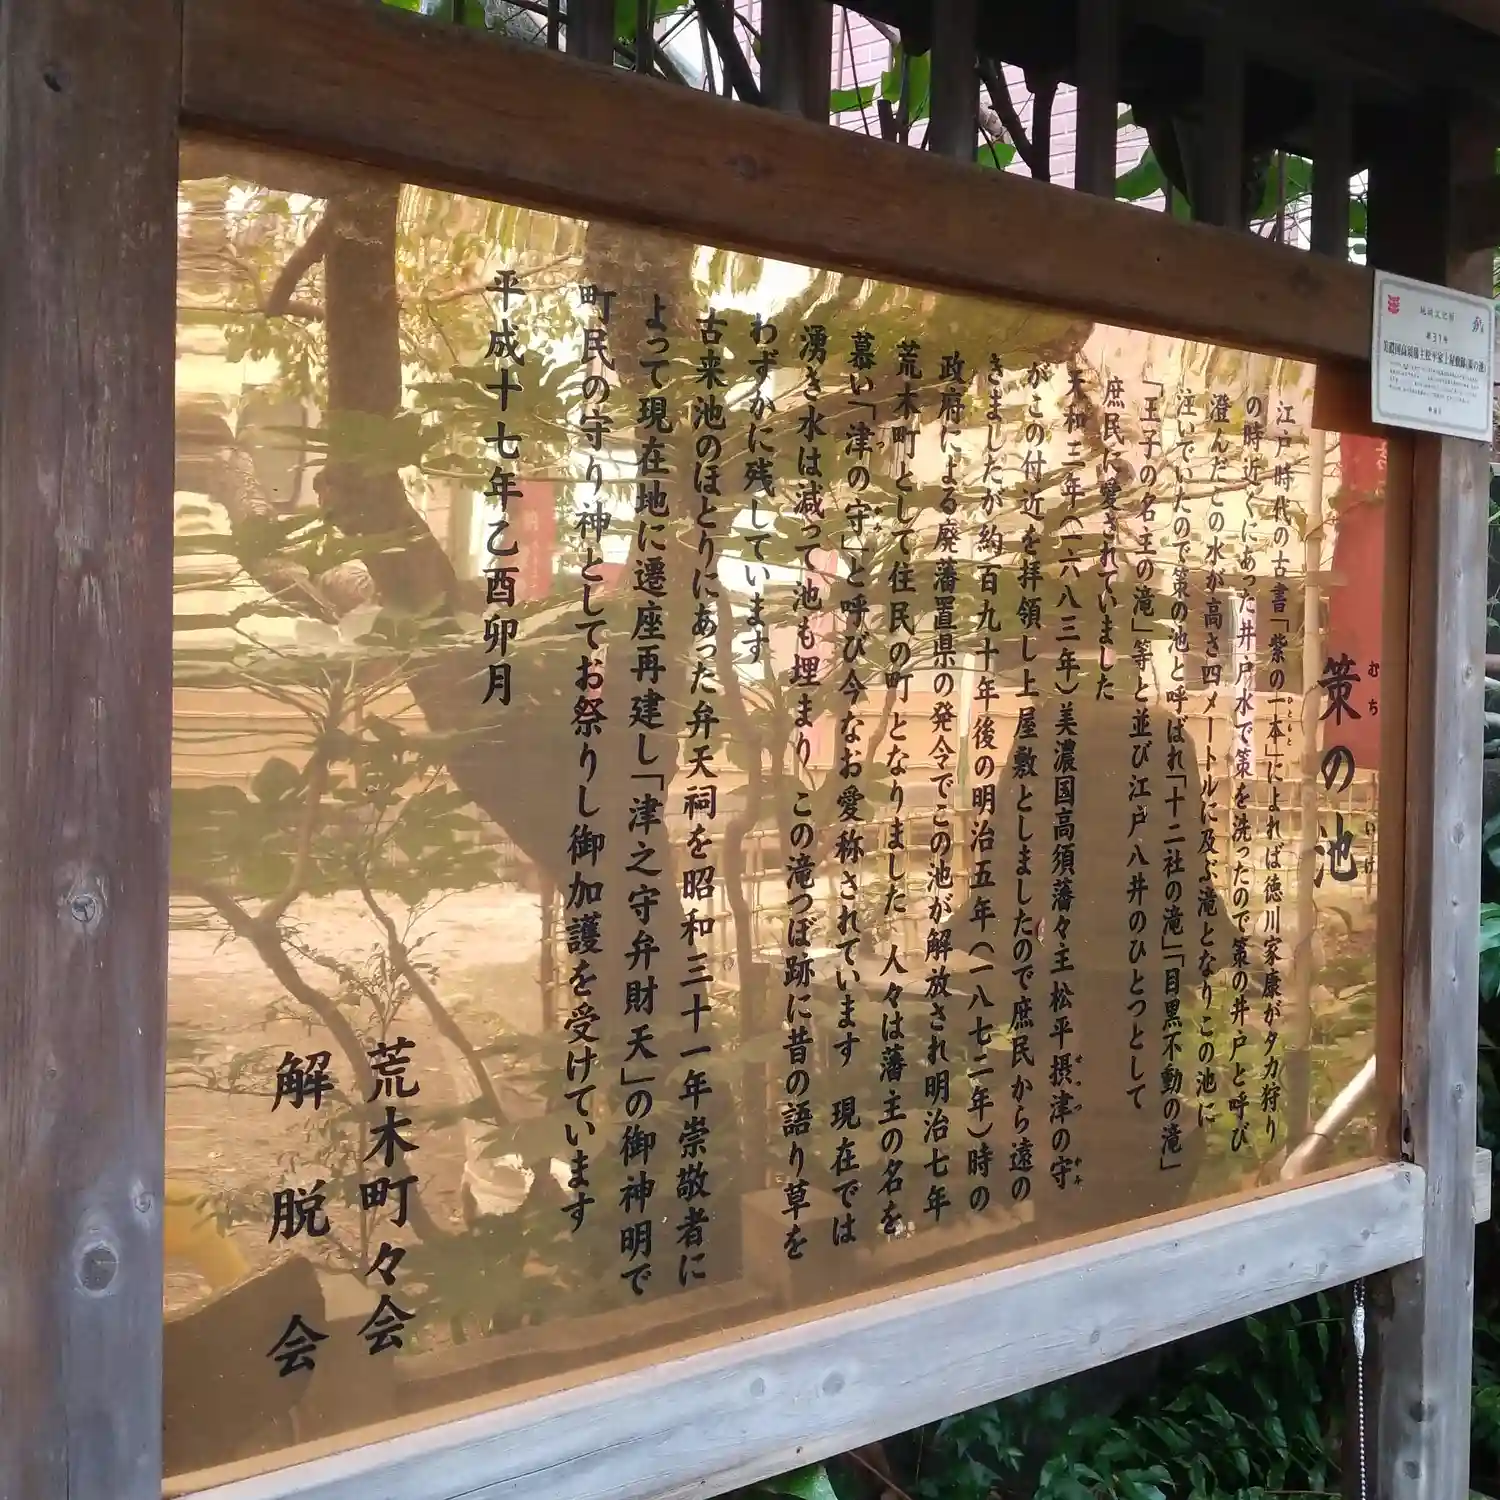 策の池
むち
いけ
江戸時代の古書「紫の一本」によれば徳川家康がタカ狩り
ひともと
の時近くにあった井戸水で策を洗ったので策の井戸と呼び
澄んだこの水が高さ四メートルに及ぶ滝となりこの池に
注いでいたので策の池と呼ばれ「十二社の滝」「目黒不動の滝」
「王子の名主の滝」等と並び江戸八井のひとつとして
庶民に愛されていました
天和三年(一六八三年)美濃国高須藩々主松平摂津の守
せっつ
がこの付近を拝領し上屋敷としましたので庶民から遠の
きましたが約百九十年後の明治五年(一八七二年)時の
政府による廃藩置県の発令でこの池が解放され明治七年
荒木町として住民の町となりました 人々は藩主の名を
慕い「津の守」と呼び今なお愛称されています 現在では
湧き水は減って池も埋まり この滝つぼ跡に昔の語り草を
わずかに残しています
古来池のほとりにあった弁天祠を昭和三十一年崇敬者に
よって現在地に遷座再建し「津之守弁財天」の御神明で
町民の守り神としてお祭りし御加護を受けています
平成十七年乙酉卯月
荒木町々会
解脱会
地域文化財
第31号
美濃国高須藩主松平家上屋敷跡(策の池)